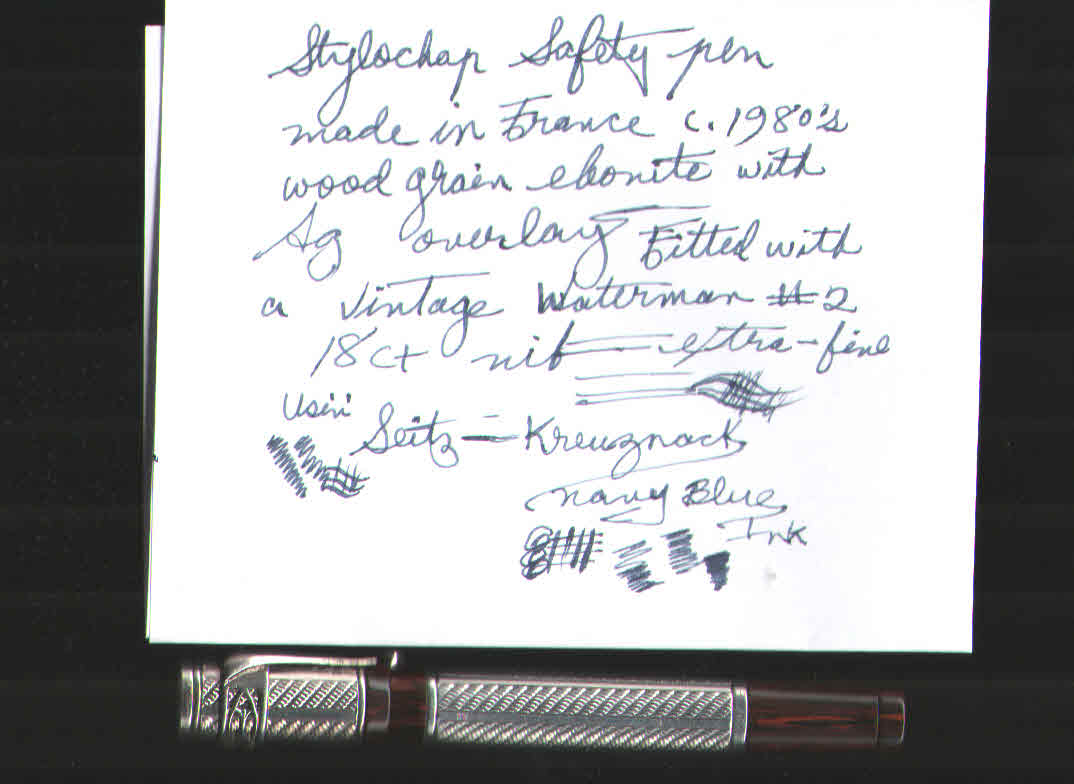 Stylochap Safety pen
made in France c. 1980's
wood grain ebonite with
Ag overlay Fitted with
a vintage Waterman #2
18ct nib extra-fine
Usin
Seitz-Kreuznack
navy Blue
Ink